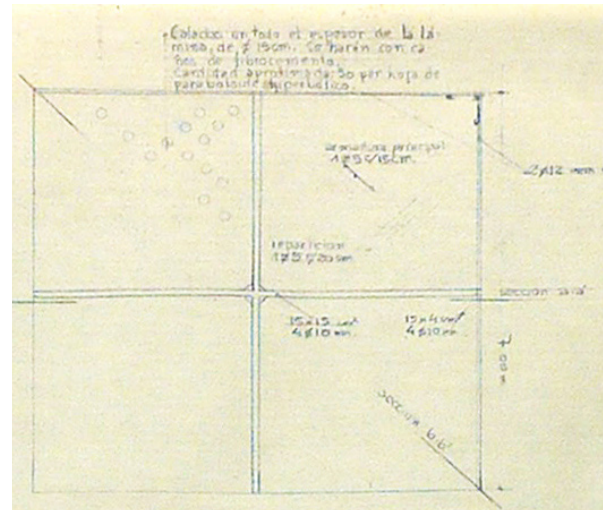 Calados en todo el espesor de la lá-
mina, de ø 15cm. Se harán con ca-
ños de fibrocemento.
Cantidad aproximada: 50 por hoja de
paraboloide hiperbólico.
armadura principal
1ø5c/15cm.
2ø12 mm
repartición
1ø5c/20cm
sección a-a'
15x15 cm²
4ø10mm.
15x4cm²
4ø10mm
sección b-b'